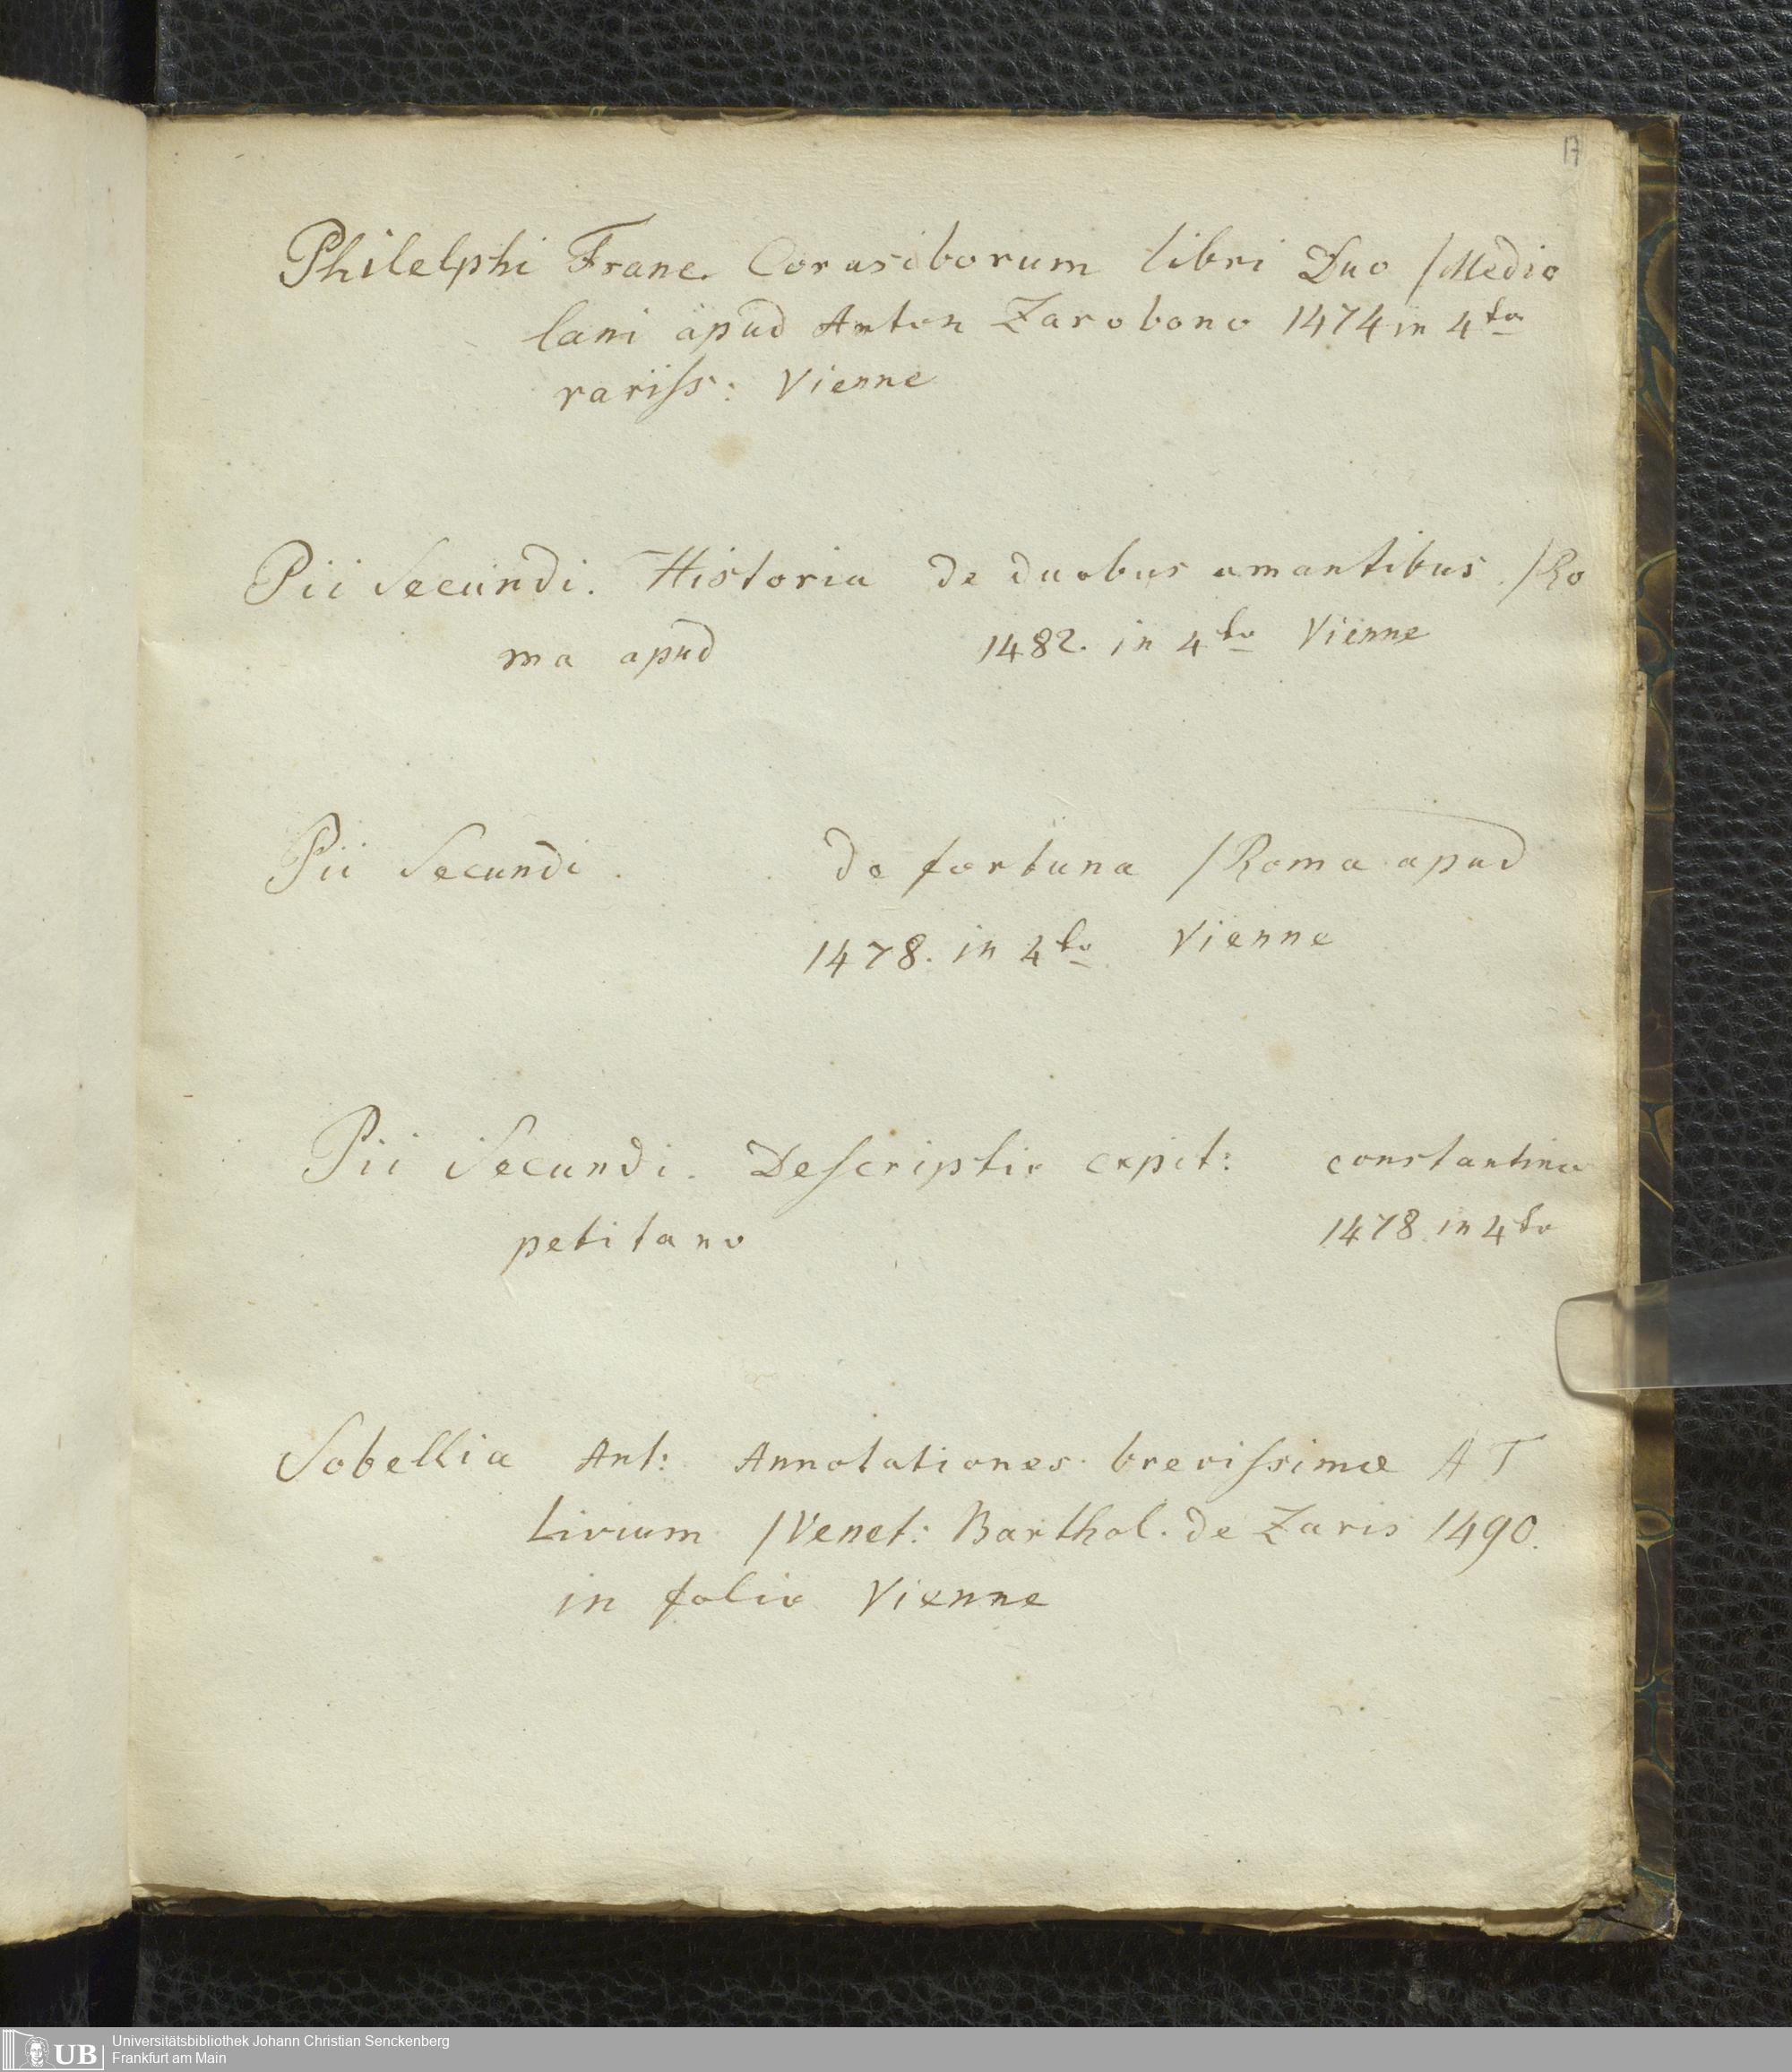 17
Philelphi Franc. Corasiborum libri Duo /Medio
lani apud Anton Zarobono 1474 in 4to
rariss: Vienne
Pii Secundi. Historia de duobus amantibus. /Ro
ma apud 1482. in 4to Vienne
Pii Secundi. de fortuna /Roma apud
1478. in 4to Vienne
Pii Secundi. Descriptio expit: constantino
petitano 1478 in 4to
Sobellia Ant: Annotationes brevissimæ A T
Livium /Venet: Barthol. de Zaris 1490.
in folio Vienne
UB Universitätsbibliothek Johann Christian Senckenberg
Frankfurt am Main